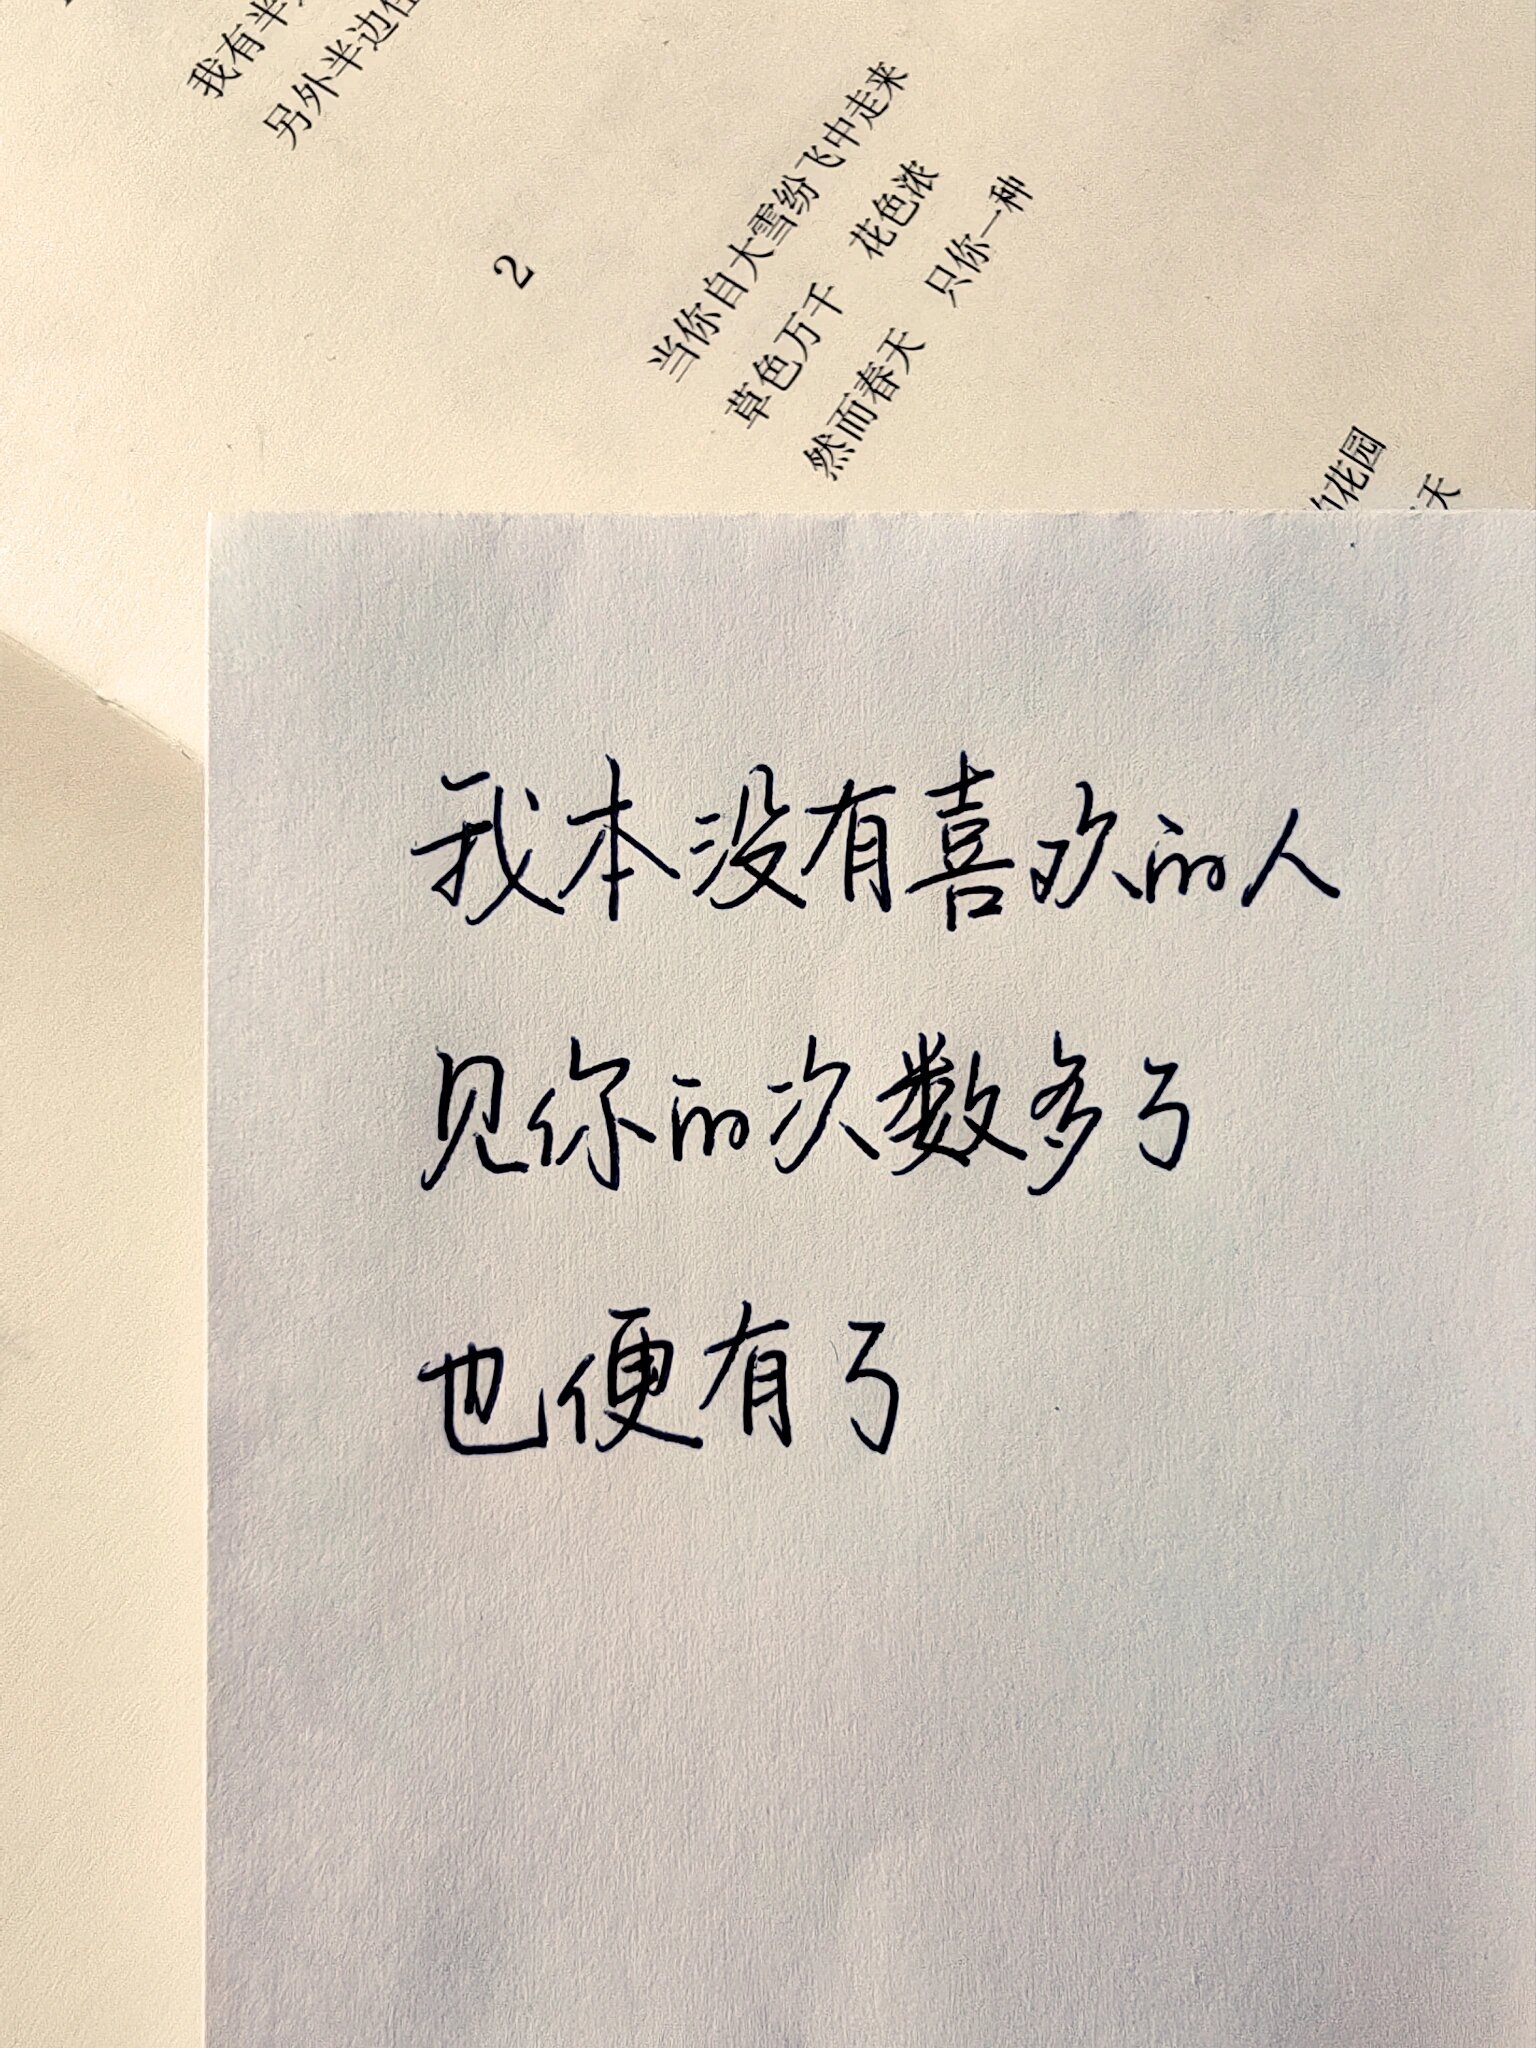 我有半
另外半边住
2
当你自大雪纷飞中走来
草色万千 花色浓
然而春天 只你一种
花园
天
我本没有喜欢的人
见你的次数多了
也便有了